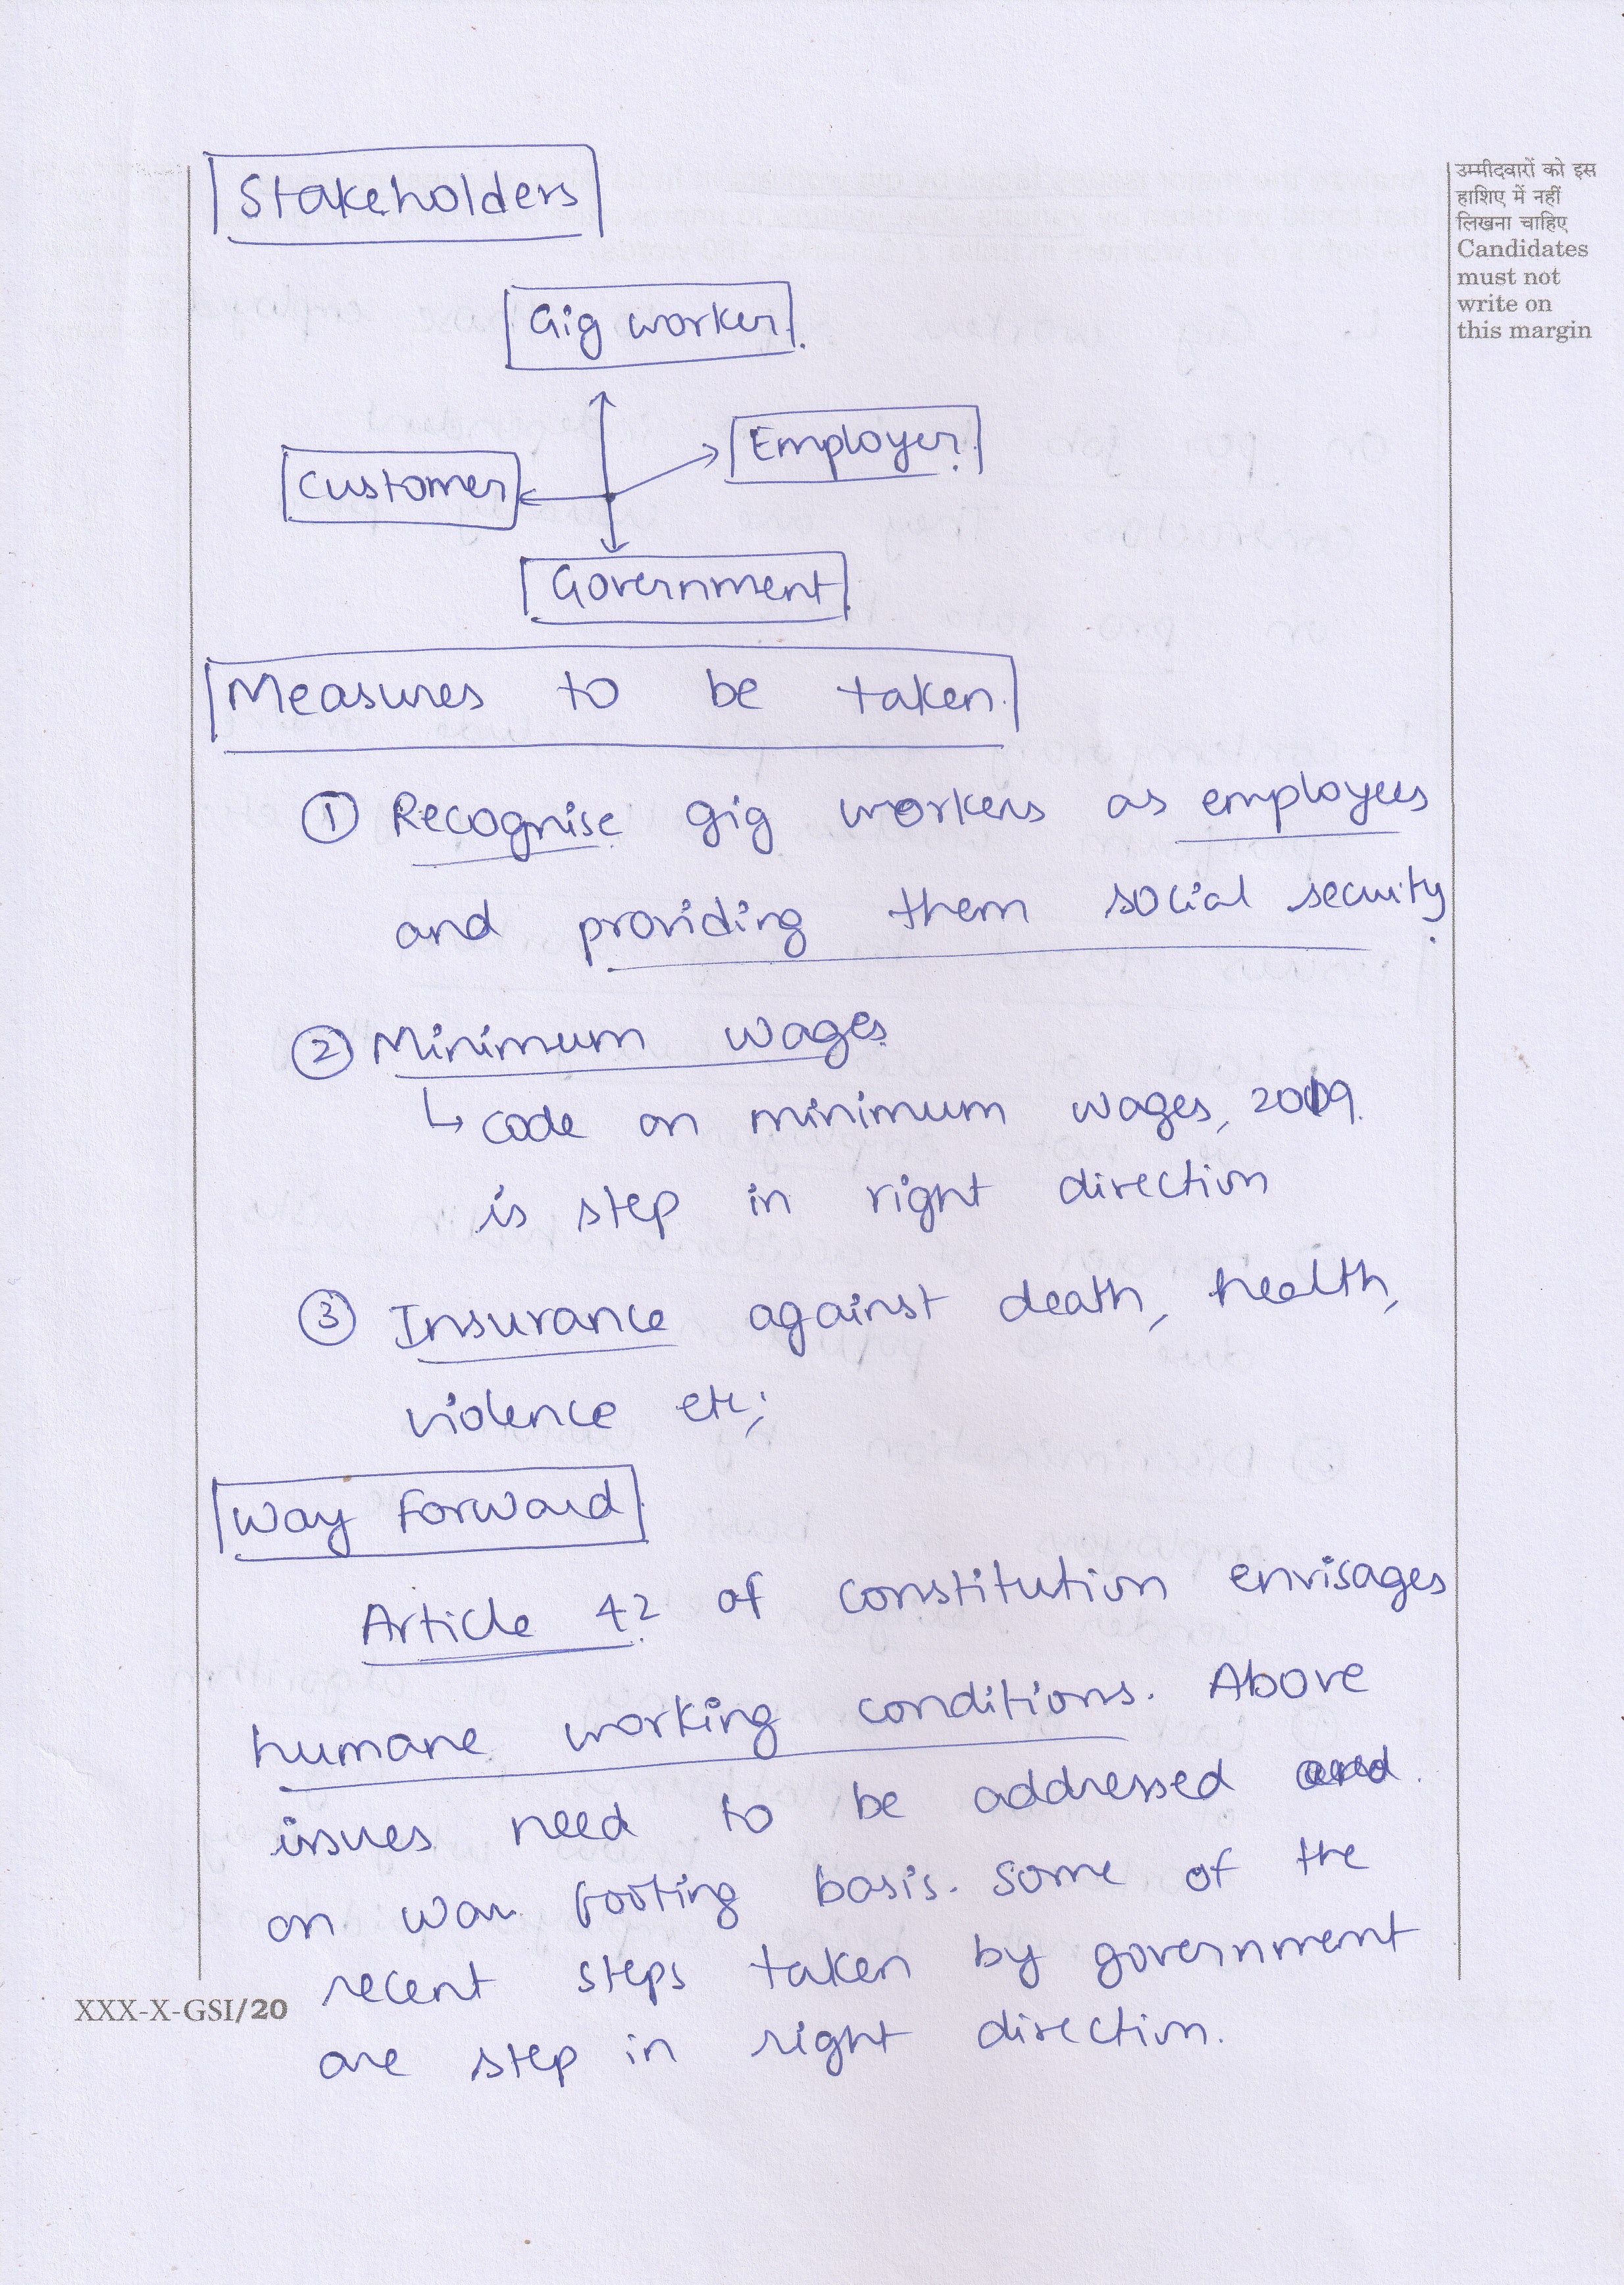 Stakeholders
उम्मीदवारों को इस
हाशिए में नहीं
लिखना चाहिए
Candidates
must not
write on
this margin
Gig worker.
Employer.
Customer
Government
Measures to be taken.
① Recognise gig workers as employees
and providing them social security.
② Minimum wages
↳ code on minimum wages, 2019.
is step in right direction
③ Insurance against death, health,
violence etc;
Way Forward
Article 42 of constitution envisages
humane working conditions. Above
issues need to be addressed
on war footing basis. Some of the
recent steps taken by government
are step in right direction.
XXX-X-GSI/20